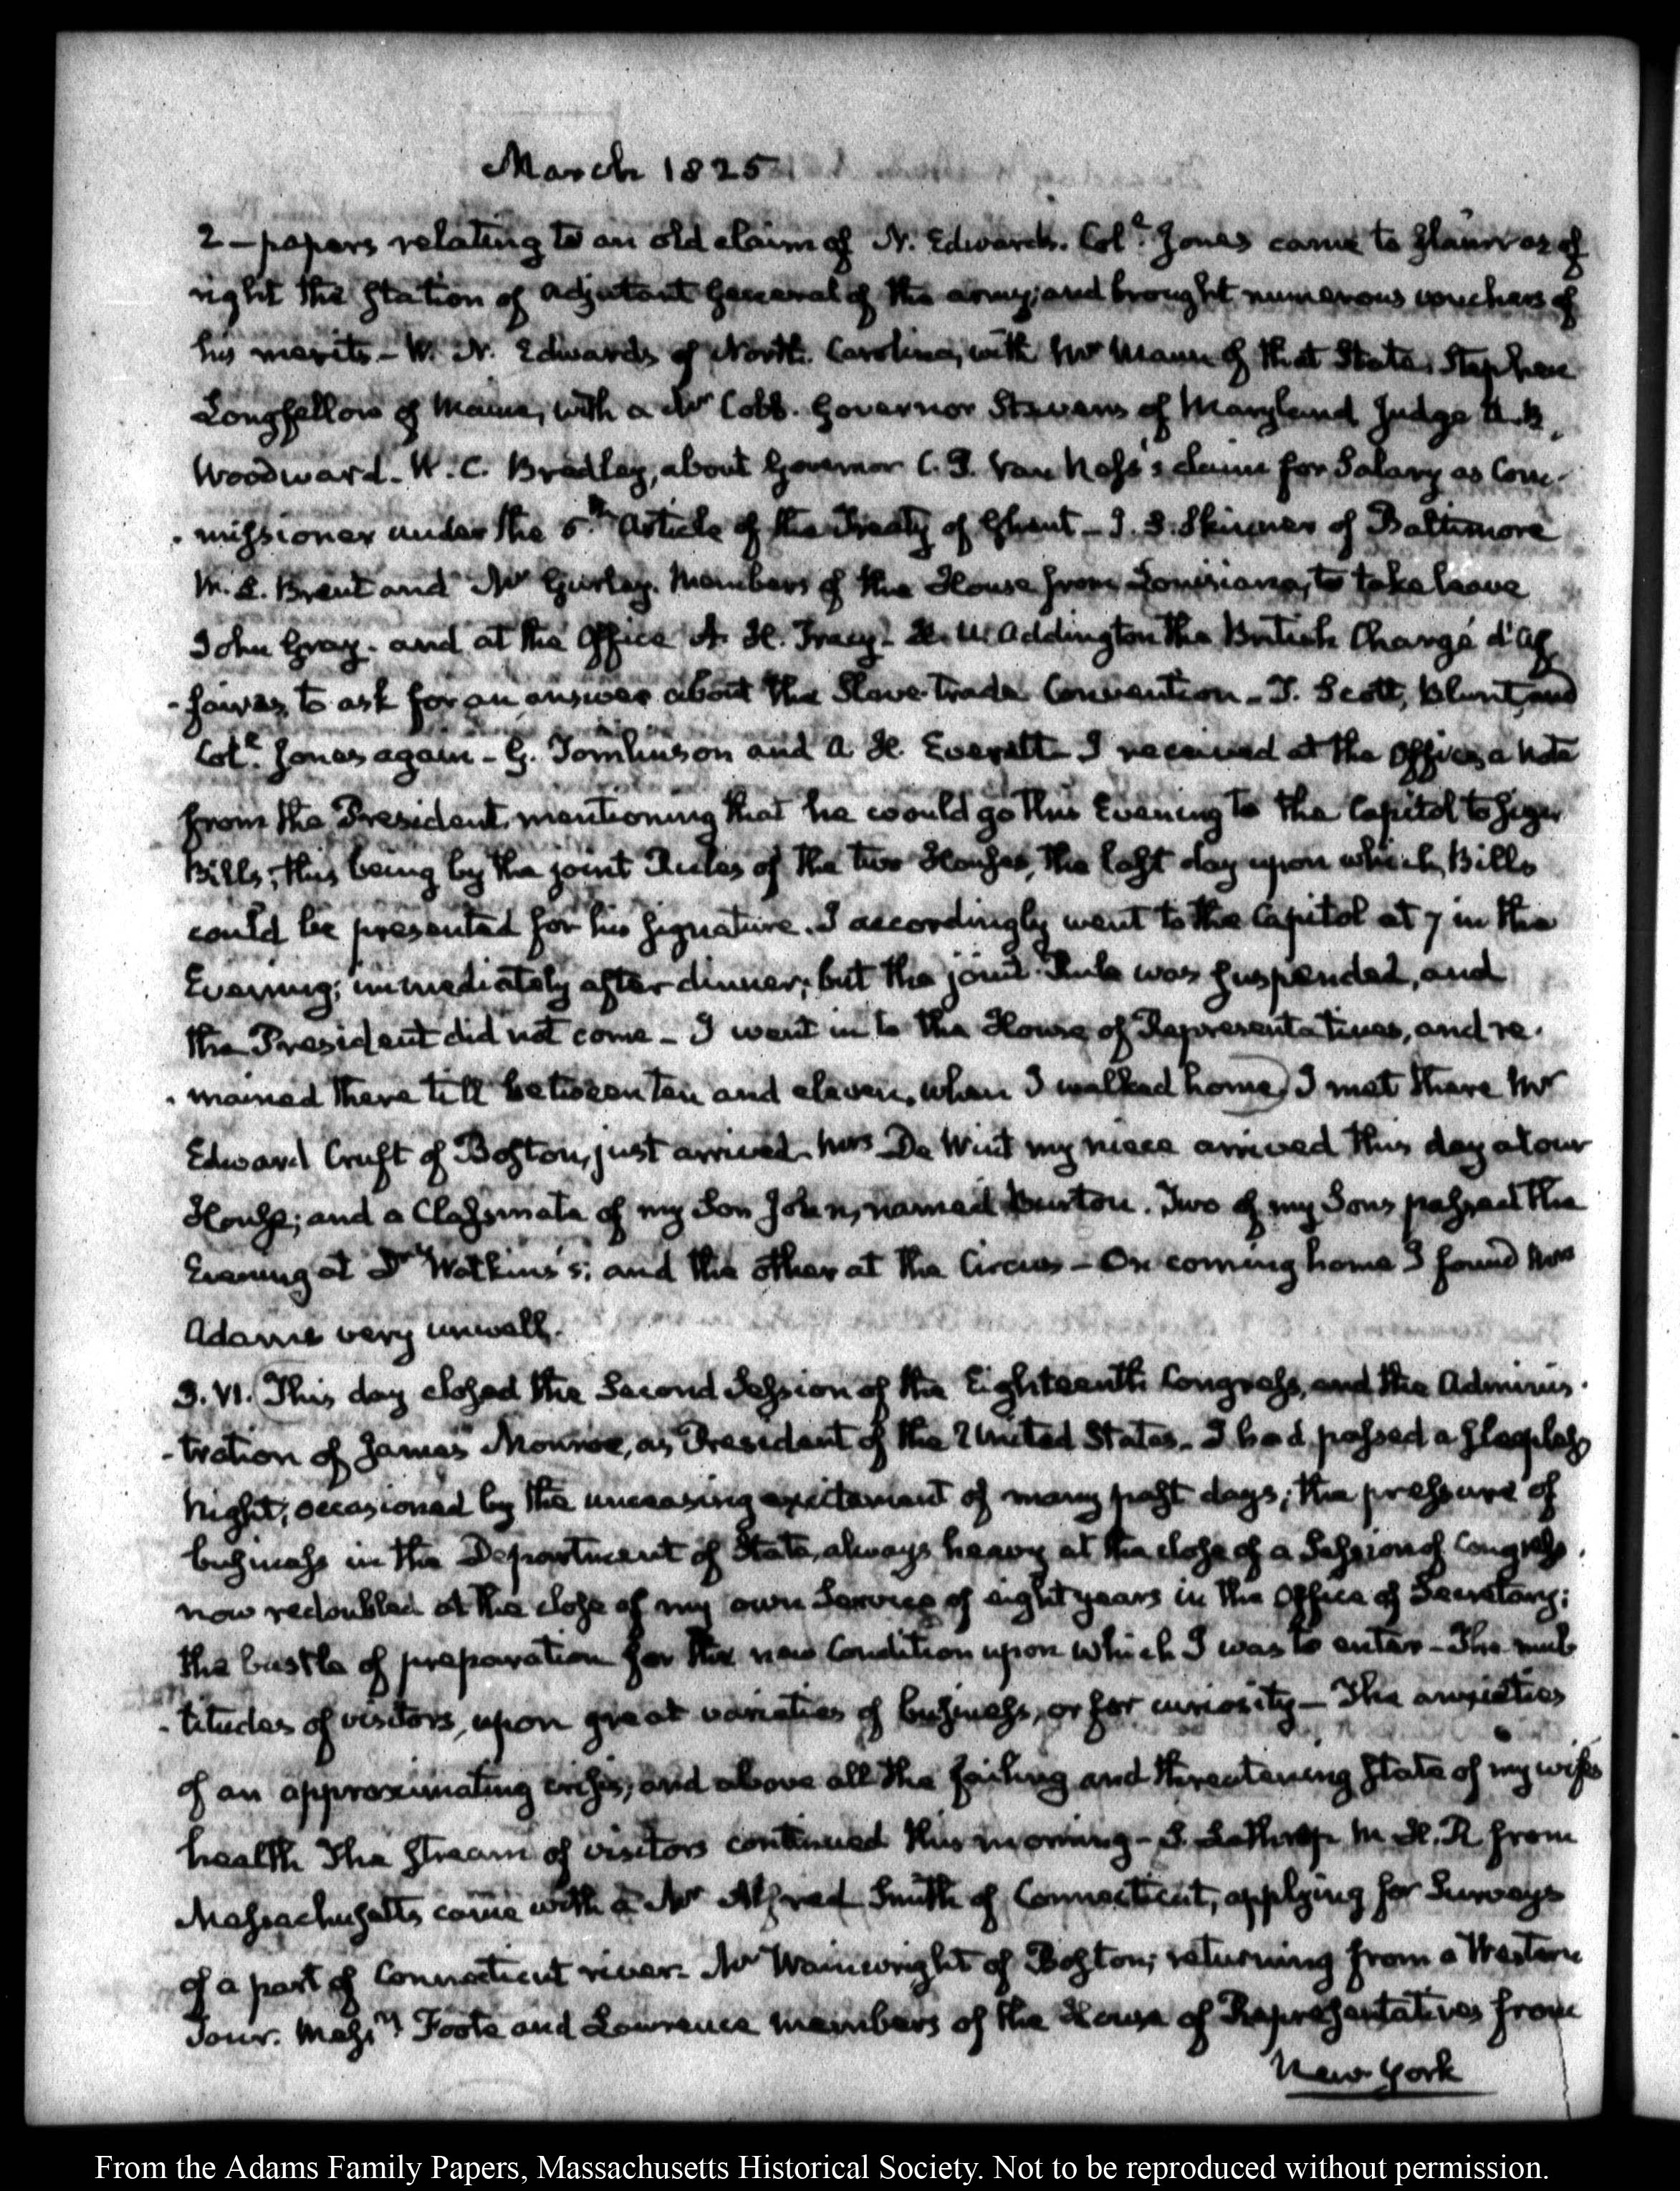 March 1825
2 – papers relating to an old claim of N. Edwards. Col.l Jones came to claim as of
right the station of Adjutant General of the army; and brought numerous vouchers of
his merits – W. N. Edwards of North Carolina, with Mr Mann of that State. Stephen
Longfellow of Maine, with a Mr Cobb. Governor Stevens of Maryland Judge A. B.
Woodward. W. C. Bradley, about Governor C. P. Van Ness's claim for Salary as Com-
-missioner under the 5th Article of the Treaty of Ghent – J. S. Skinner of Baltimore
W. L. Brent and Mr Gurley. Members of the House from Louisiana, to take leave
John Gray. and at the Office A. H. Tracy – H. U. Addington the British Chargé d'Af
-faires, to ask for an answer about the Slave-trade Convention – J. Scott, Blunt, and
Col.l Jones again – G. Tomlinson and A. H. Everett – I received at the Office, a Note
from the President, mentioning that he would go this Evening to the Capitol to sign
Bills; this being by the joint Rules of the two Houses, the last day upon which Bills
could be presented for his signature. I accordingly went to the Capitol at 7 in the
Evening; immediately after dinner; but the joint Rule was suspended, and
the President did not come – I went in to the House of Representatives, and re-
-mained there till between ten and eleven, when I walked home) I met there Mr
Edward Cruft of Boston, just arrived. Mrs De Wint my niece arrived this day at our
House; and a Classmate of my Son John, named Burton. Two of my Sons passed the
Evening at Dr Watkins's; and the other at the Circus – On coming home I found Mrs
Adams very unwell.
3. VI. (This day closed the Second Session of the Eighteenth Congress, and the Adminis-
-tration of James Monroe, as President of the United States. I had passed a sleepless
Night; occasioned by the unceasing excitement of many past days; the pressure of
business in the Department of State, always heavy at the close of a Session of Congress,
now redoubled at the close of my own Service of eight years in the Office of Secretary;
the bustle of preparation for the new Condition upon which I was to enter – The mul
-titudes of visitors, upon great varieties of business, or for curiosity – The anxieties
of an approximating crisis; and above all the failing and threatening state of my wife's
health The stream of visitors continued this morning – S. Lathrop M. H. R from
Massachusetts came with a Mr Alfred Smith of Connecticut, applying for Surveys
of a part of Connecticut river. Mr Wainwright of Boston; returning from a Western
Tour. Messrs Foote and Lawrence members of the House of Representatives from
New York
From the Adams Family Papers, Massachusetts Historical Society. Not to be reproduced without permission.